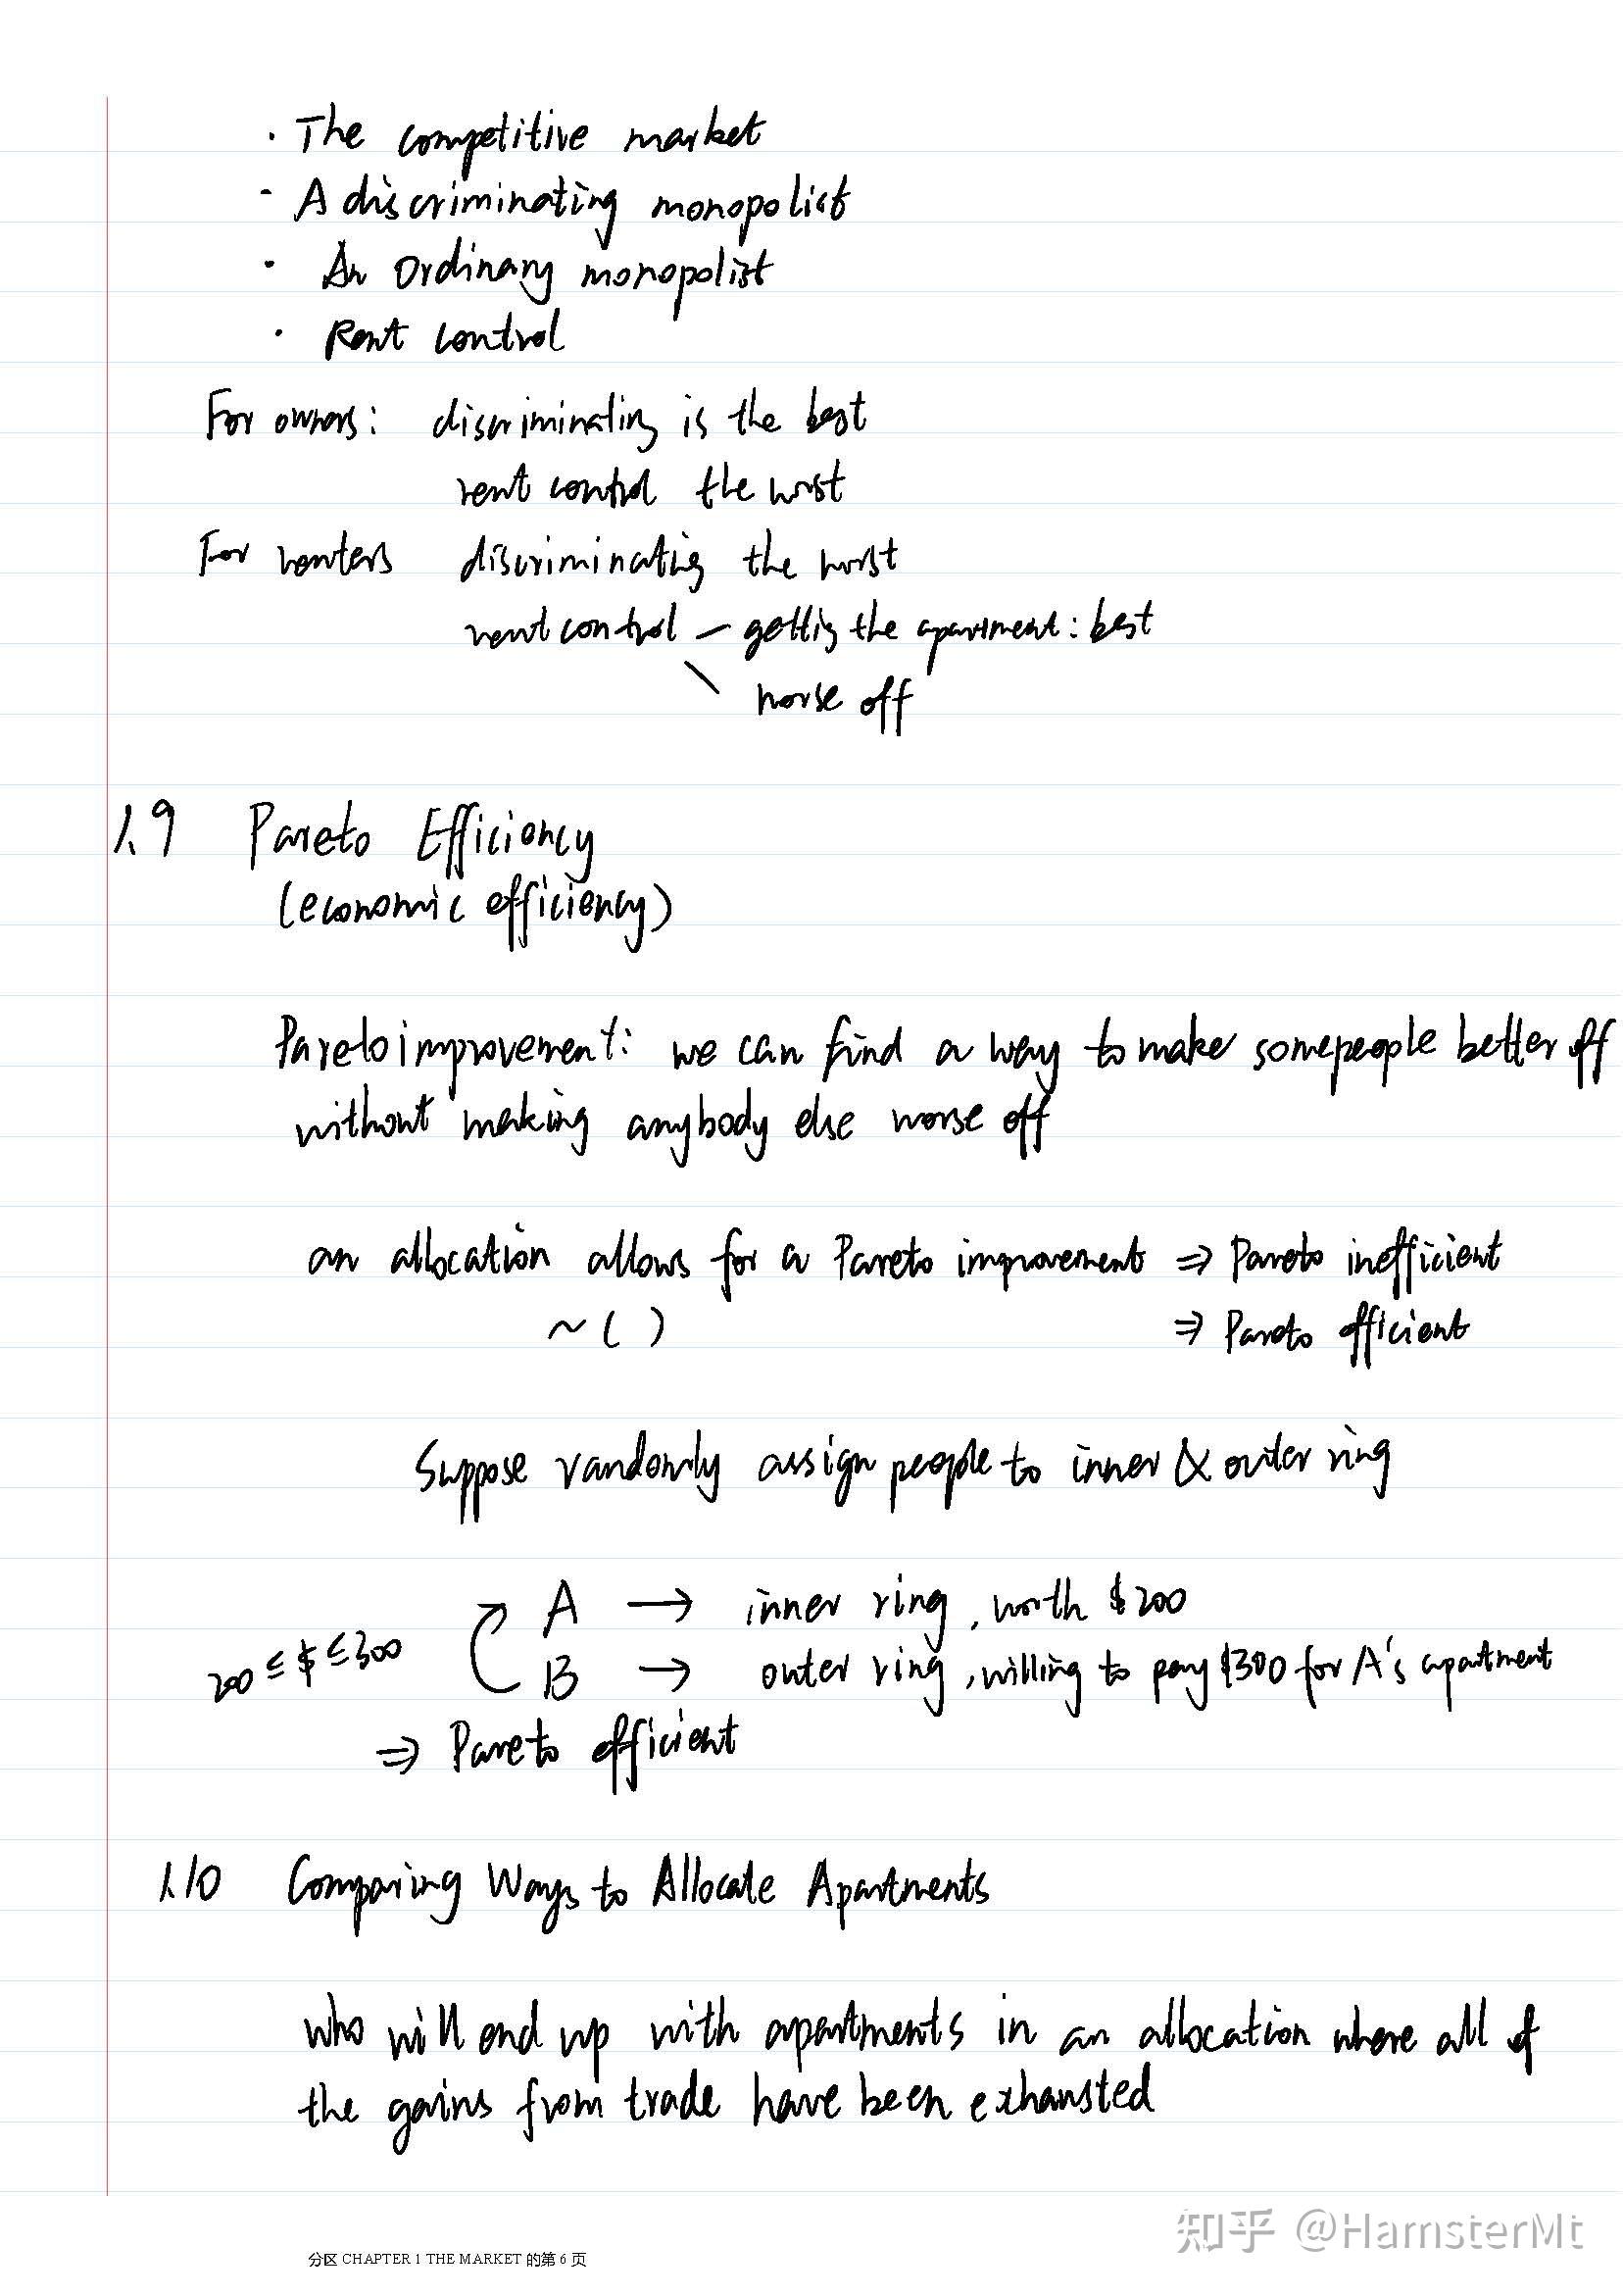 · The competitive market
· A discriminating monopolist
· An Ordinary monopolist
· Rent control
For owners: discriminating is the best
rent control the worst
For renters discriminating the worst
rent control — getting the apartment: best
\ worse off
1.9 Pareto Efficiency
(economic efficiency)
Pareto improvement: we can find a way to make some people better off
without making anybody else worse off
an allocation allows for a Pareto improvement ⇒ Pareto inefficient
~ ( ) ⇒ Pareto efficient
Suppose randomly assign people to inner & outer ring
A → inner ring, worth $200
200 ≤ $ ≤ 300 B → outer ring, willing to pay $300 for A's apartment
⇒ Pareto efficient
1.10 Comparing Ways to Allocate Apartments
who will end up with apartments in an allocation where all of
the gains from trade have been exhausted
知乎 @HamsterMt
分区 CHAPTER 1 THE MARKET 的第 6 页